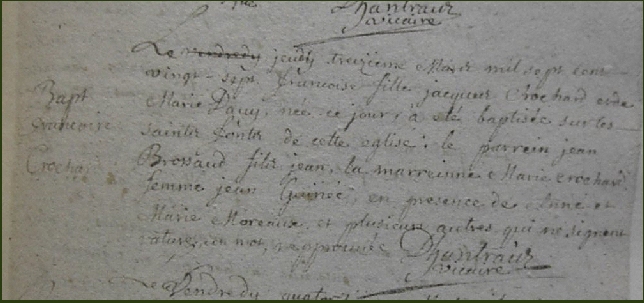 Chantraux
vicaire
Bapt
francoise
Crochard
Le vendredy jeudy treizieme Mars mil sept cent
vingt-sept, francoise fille jacques Crochard et de
Marie Dauy, née ce jour, a été baptisée sur les
saints fonts de cette eglise; le parrein jean
Brossaud fils jean, la marreinne Marie Crochard
femme jean Guinée, en presence de Anne et
Marie Moreaux et plusieurs autres qui ne signent
rature, un mot, ne approuvée
Chantraux
vicaire
Le Vendredy